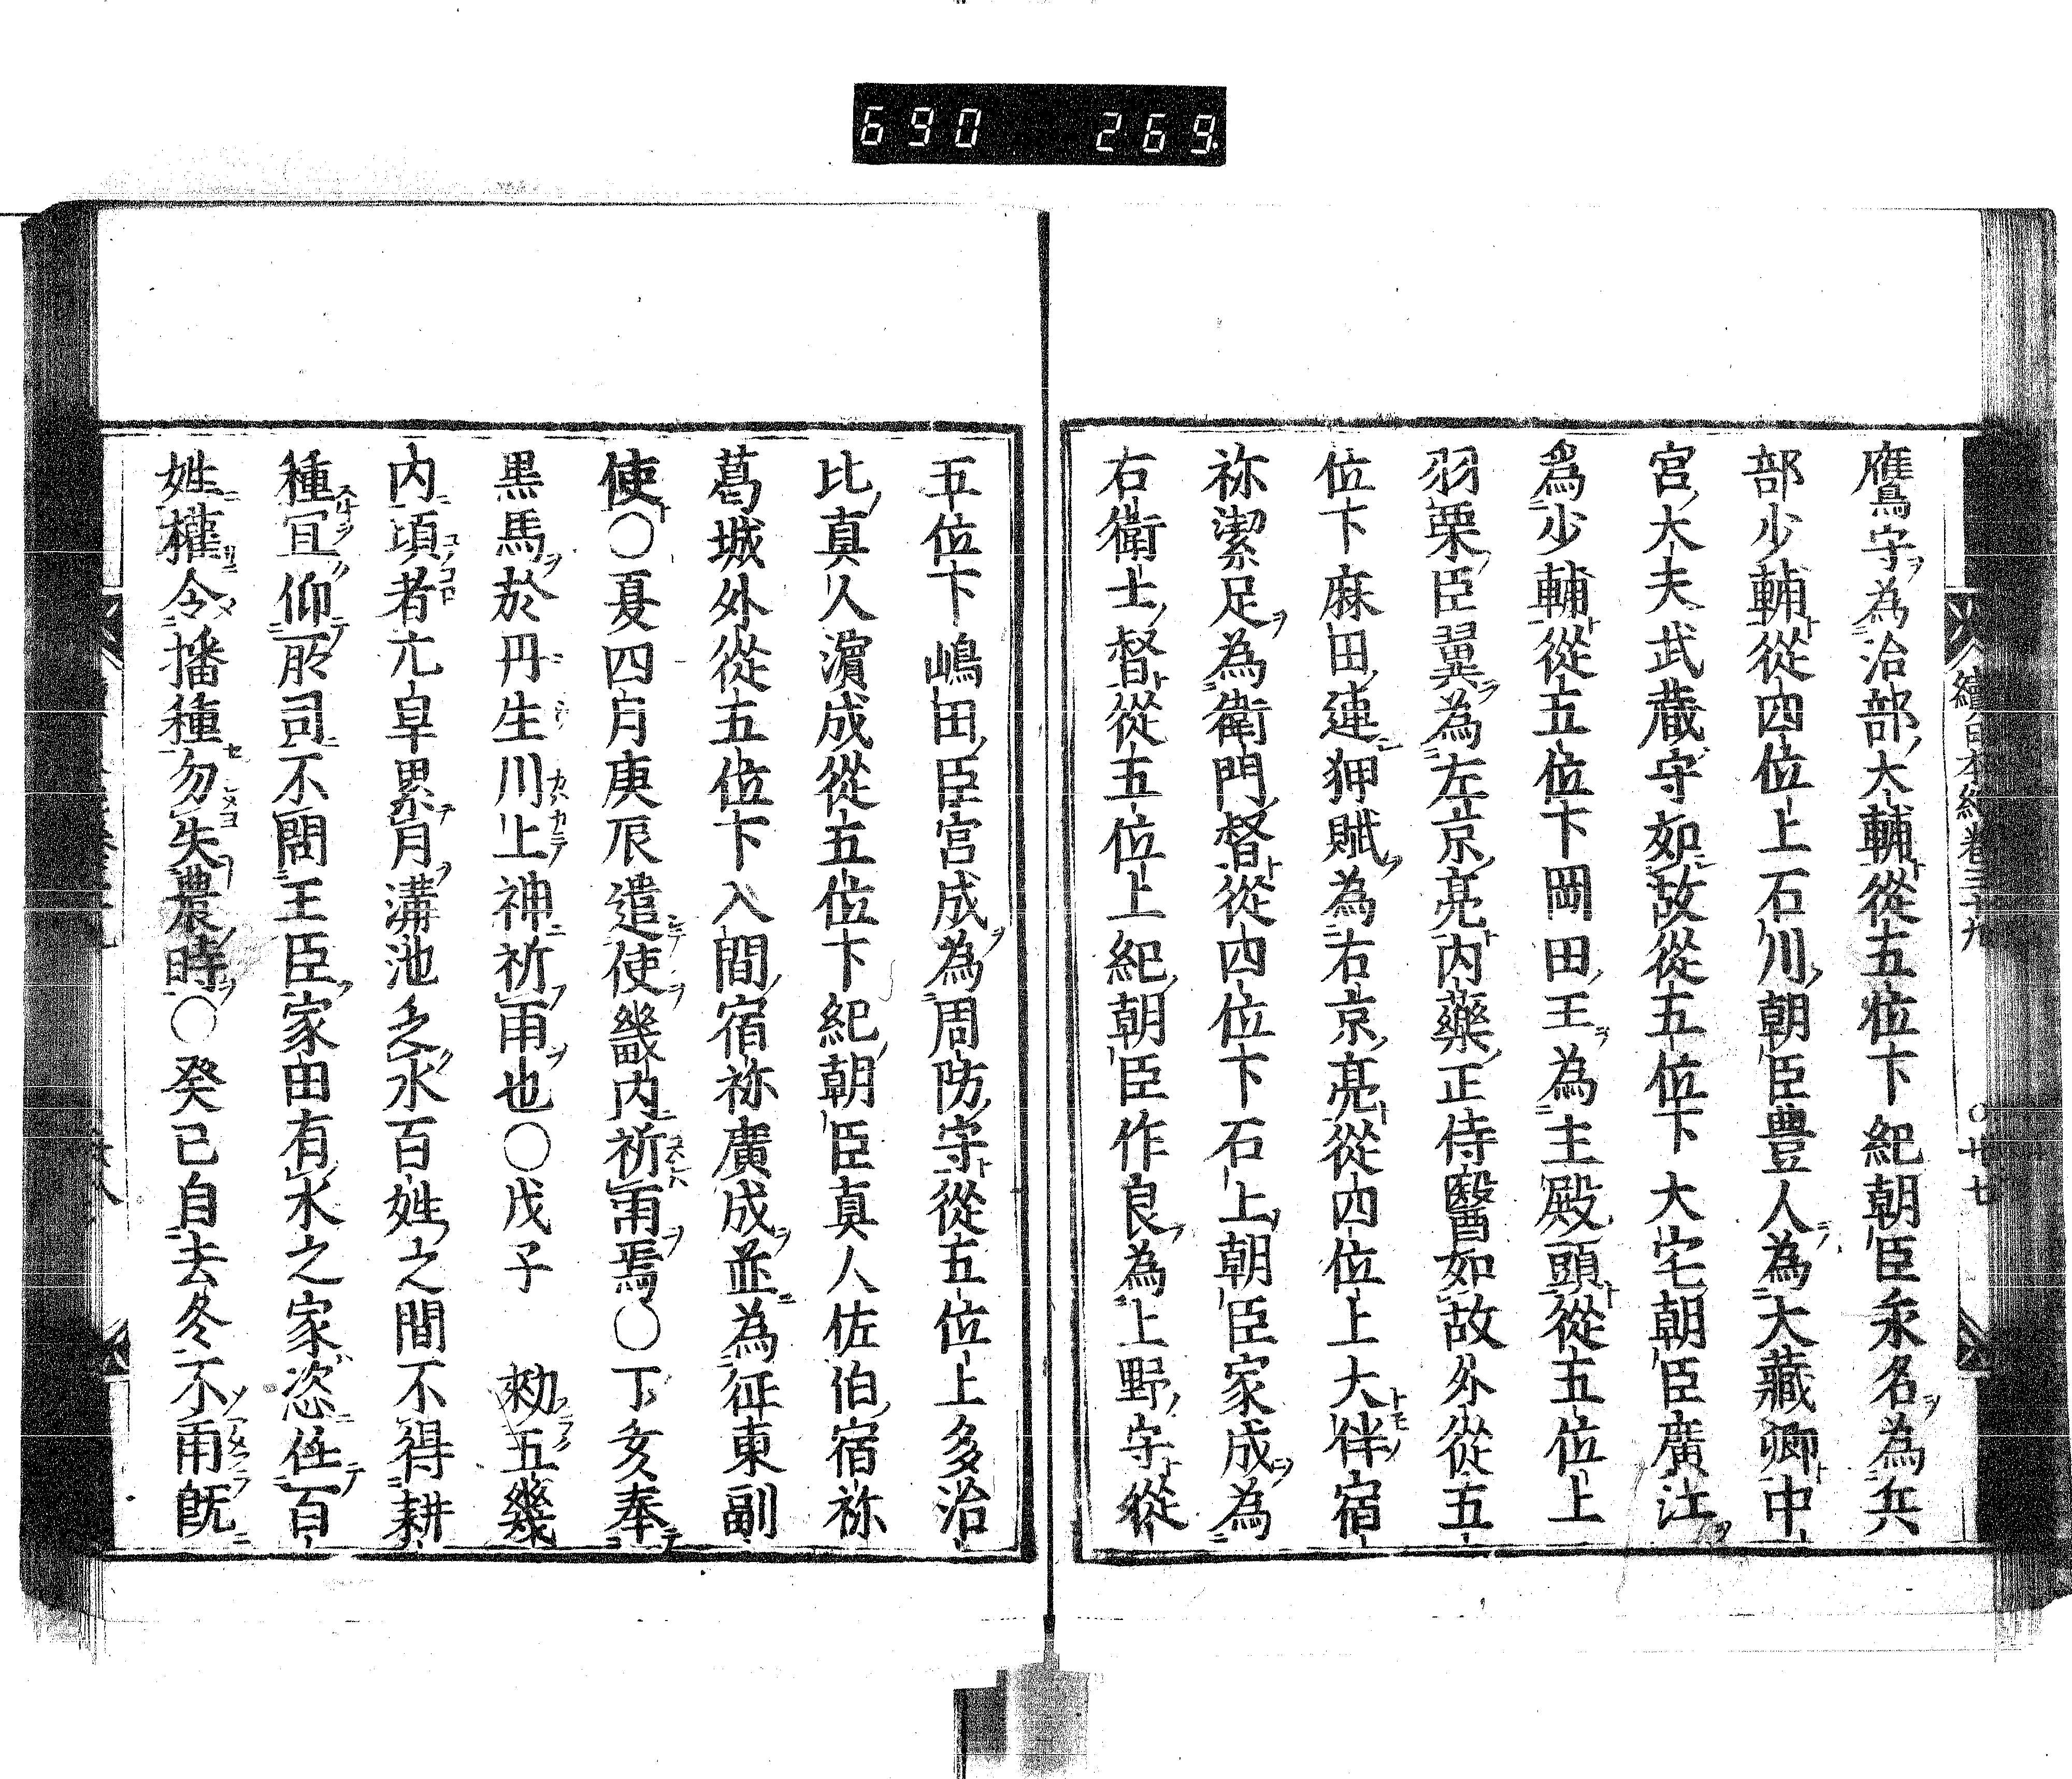 690 269
續日本紀卷三十九 〇廿七
鷹守為治部大輔從五位下紀朝臣永名為兵
部少輔從四位上石川朝臣豊人為大藏卿中
宮大夫武蔵守如故從五位下大宅朝臣廣江
為少輔從五位下岡田王為主殿頭從五位上
羽栗臣翼為左京亮内藥正侍醫如故外從五
位下麻田連狎賦為右京亮從四位上大伴宿
祢潔足為衛門督從四位下石上朝臣家成為
右衛士督從五位上紀朝臣作良為上野守從
五位下嶋田臣宮成為周防守從五位上多治
比真人濵成從五位下紀朝臣真人佐伯宿祢
葛城外從五位下入間宿祢廣成並為征東副
使〇夏四月庚辰遣使畿内祈雨焉〇丁亥奉
黒馬於丹生川上神祈雨也〇戊子 勑五畿
内頃者亢旱累月溝池乏水百姓之間不得耕
種冝仰所司不問王臣家田有水之家恣任百
姓權令播種勿失農時〇癸巳自去冬不雨既